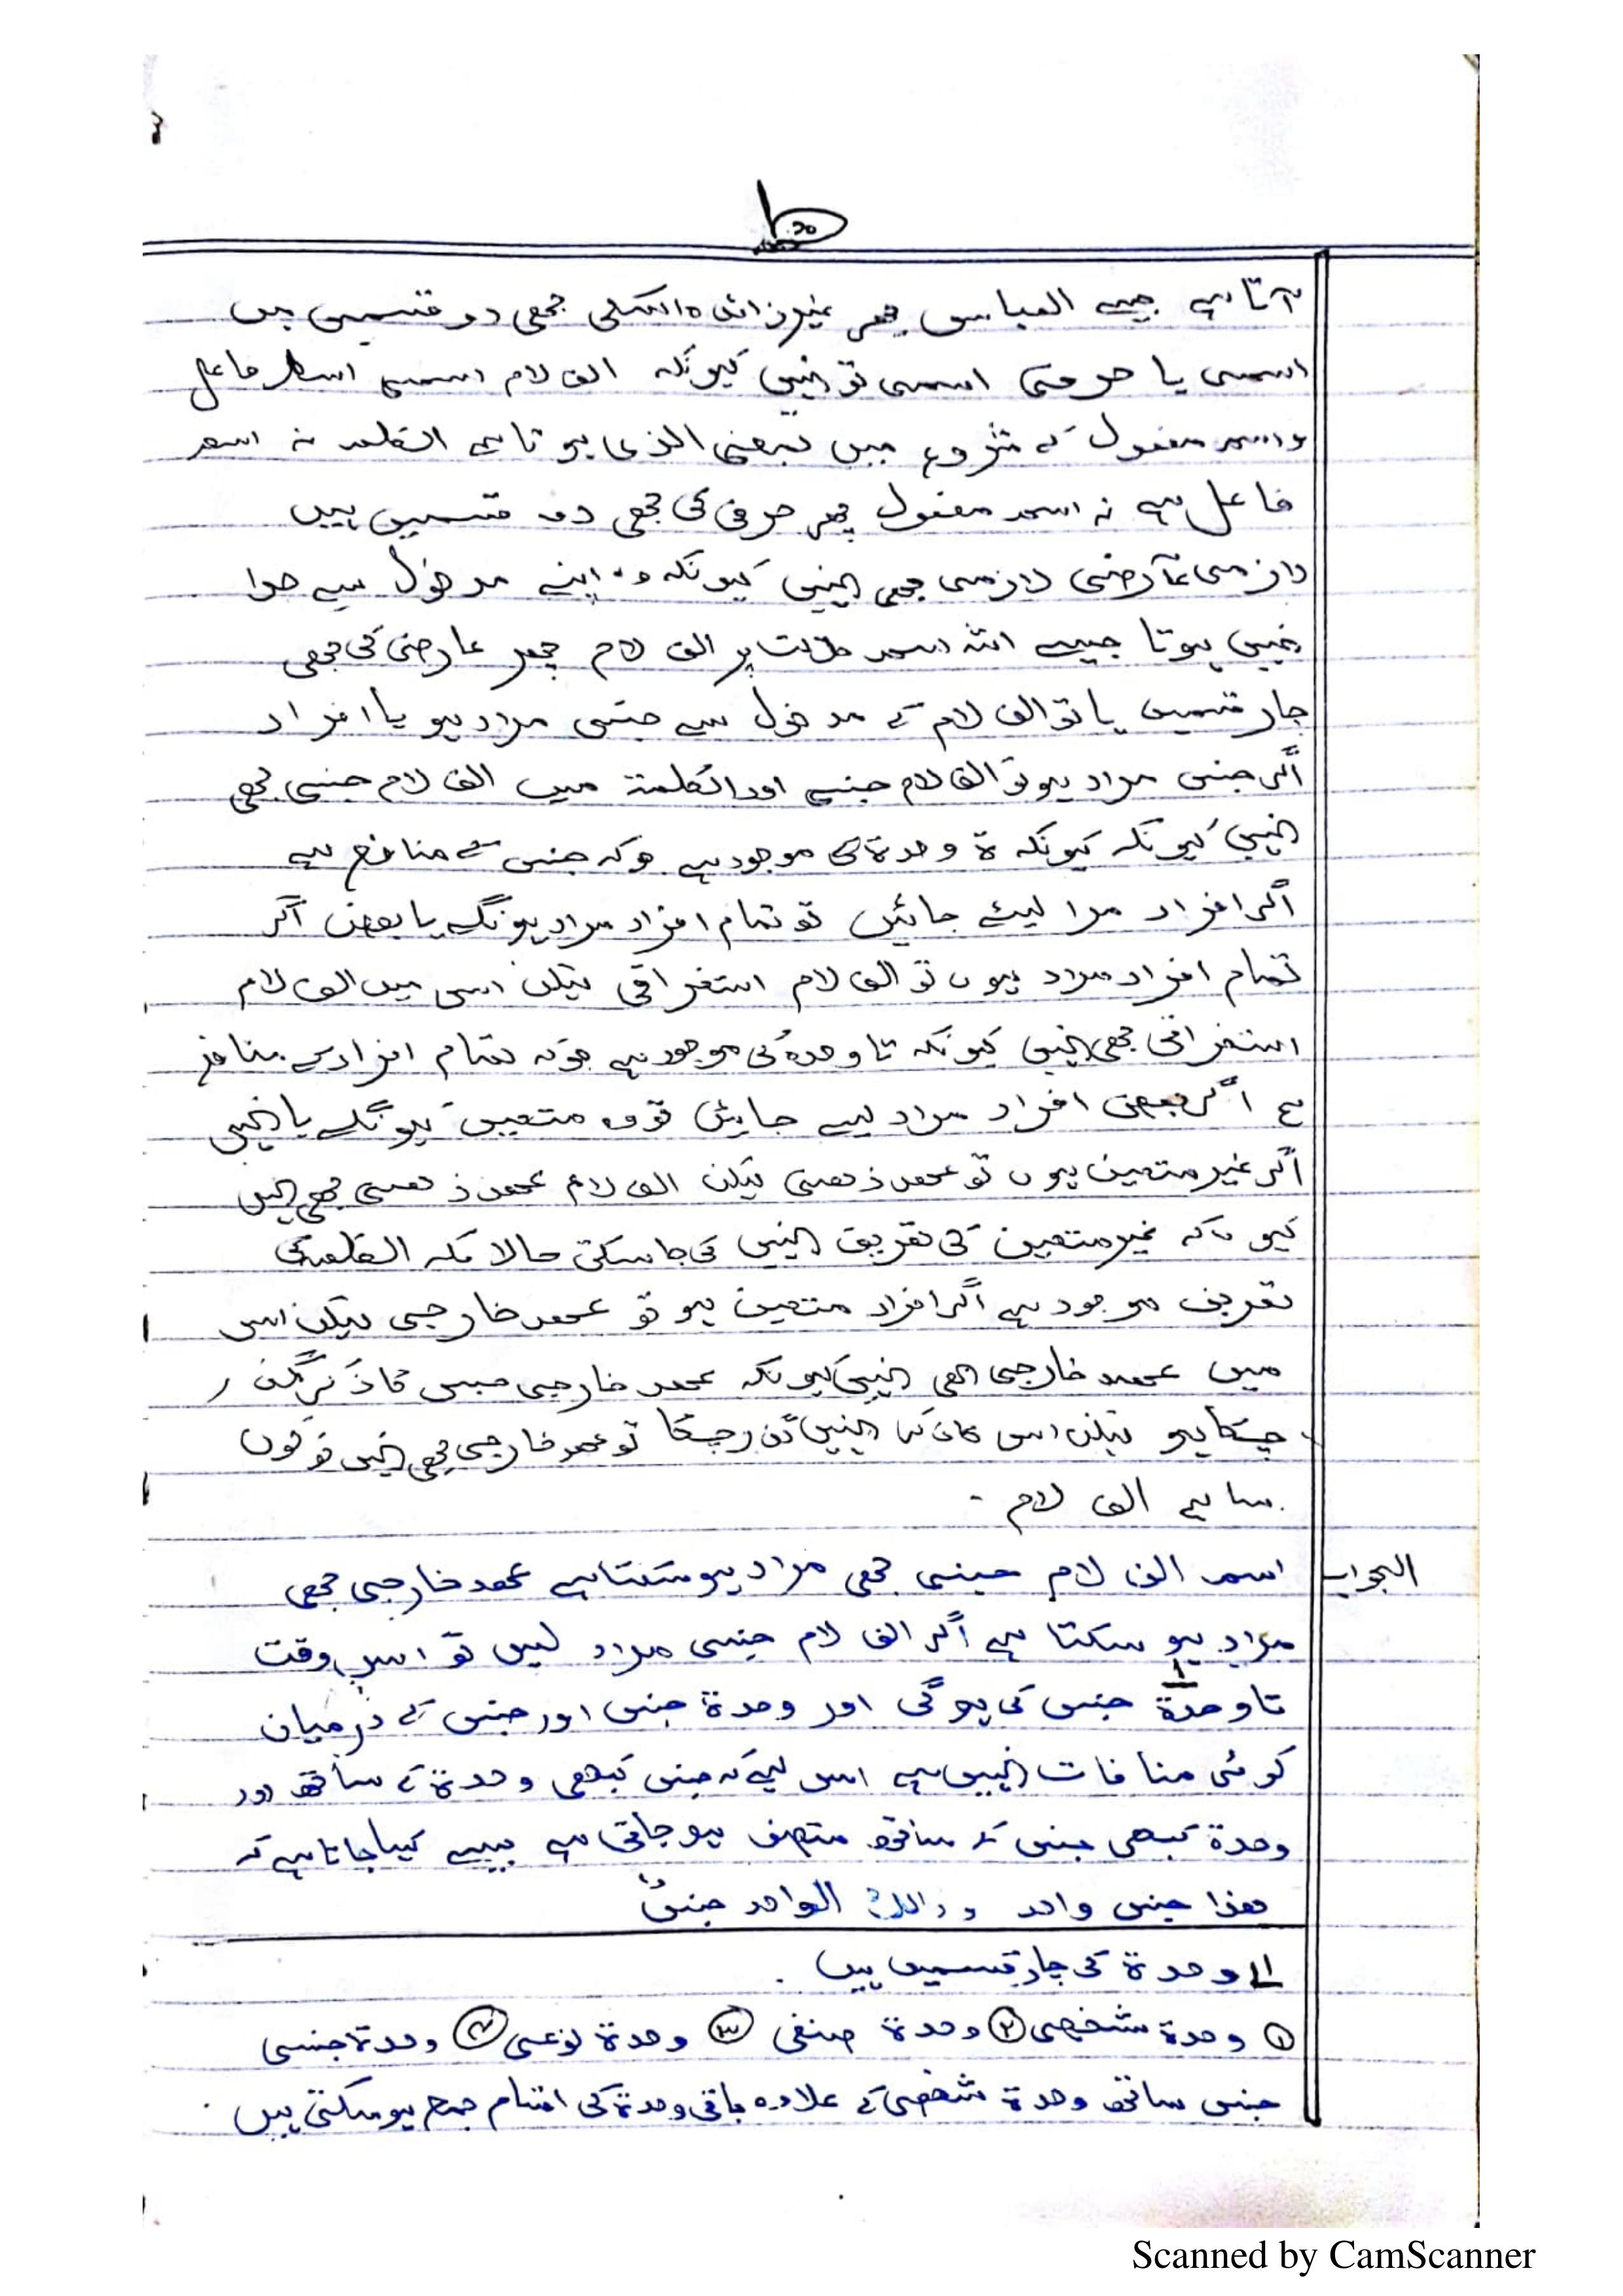 آتا ہے جیسے العباس پھر غیر زائدہ کی بھی دو قسمیں ہیں
اسمی یا حرفی اسمی تو نہیں کیونکہ الف لام اسمی اسم فاعل
و اسم مفعول کے شروع میں بمعنی الذی ہوتا ہے الکلمہ نہ اسم
فاعل ہے نہ اسم مفعول پھر حرفی کی بھی دو قسمیں ہیں
لازمی عارضی لازمی بھی نہیں کیونکہ وہ اپنے مدخول سے جدا
نہیں ہوتا جیسے اللہ اسم جلالت پر الف لام پھر عارضی کی بھی
چار قسمیں یا تو الف لام کے مدخول سے جنس مراد ہو یا افراد
اگر جنس مراد ہو تو الف لام جنسی اور الکلمۃ میں الف لام جنسی بھی
نہیں کیونکہ کیونکہ ۃ وحدۃ کی موجود ہے جو کہ جنس کے منافع ہے
اگر افراد مرا لیئے جائیں تو تمام افراد مراد ہونگے یا بعض اگر
تمام افراد مراد ہوں تو الف لام استغراقی لیکن اس میں الف لام
استغراقی بھی نہیں کیونکہ تا وحدۃ کی موجود ہے جو کہ تمام افراد کے منافع
ہے اگر بعض افراد مراد لیے جایئں تو وہ متعین ہونگے یا نہیں
اگر غیر متعین ہوں تو عھد ذھنی لیکن الف لام عھد ذھنی بھی نہیں
کیوں کہ غیر متعین کی تعریف نہیں کی جا سکتی حالانکہ الکلمہ کی
تعریف موجود ہے اگر افراد متعین ہو تو عھد خارجی لیکن اس
میں عھد خارجی بھی نہیں کیونکہ عھد خارجی جس کا ذکر گذر
چکا ہو لیکن اس کا ذکر نہیں گذر چکا تو عھد خارجی بھی نہیں تو کون
سا ہے الف لام -
الجواب اسمہ الف لام جنسی بھی مراد ہو سکتا ہے عھد خارجی بھی
مراد ہو سکتا ہے اگر الف لام جنسی مراد لیں تو اس وقت
تا وحدۃ جنس کی ہوگی اور وحدۃ جنس اور جنس کے درمیان
کوئی منافات نہیں ہے اس لیے کہ جنس کبھی وحدۃ کے ساتھ اور
وحدۃ کبھی جنس کے ساتھ متصف ہو جاتی ہے جیسے کہا جاتا ہے کہ
ھذا جنس واحد و ذالک الواحد جنسٌ
ا وحدۃ کی چار قسمیں ہیں .
① وحدۃ شخصی ② وحدۃ صنفی ③ وحدۃ نوعی ④ وحدۃ جنسی
جنس ساتھ وحدۃ شخصی کے علاوہ باقی وحدۃ کی اقسام جمع ہو سکتی ہیں .
Scanned by CamScanner